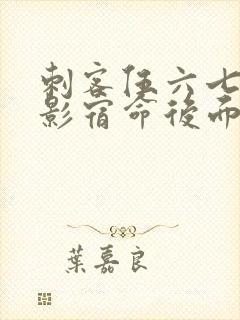 刺客伍六七
影宿命後而
葉嘉良